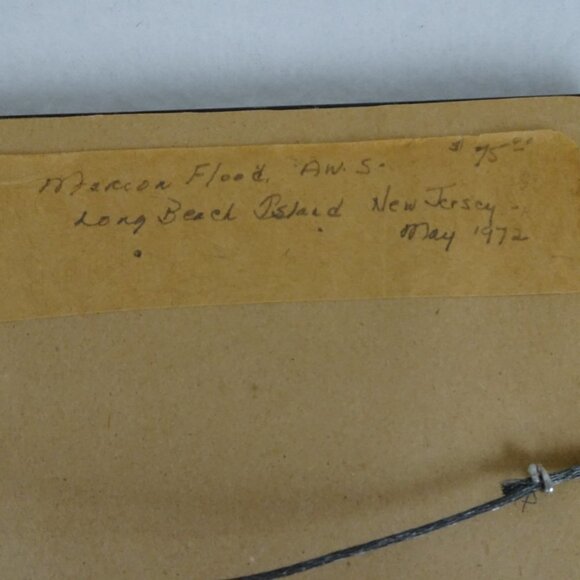 Marion Flood, A.W.S. $75.00
Long Beach Island New Jersey -
May 1972